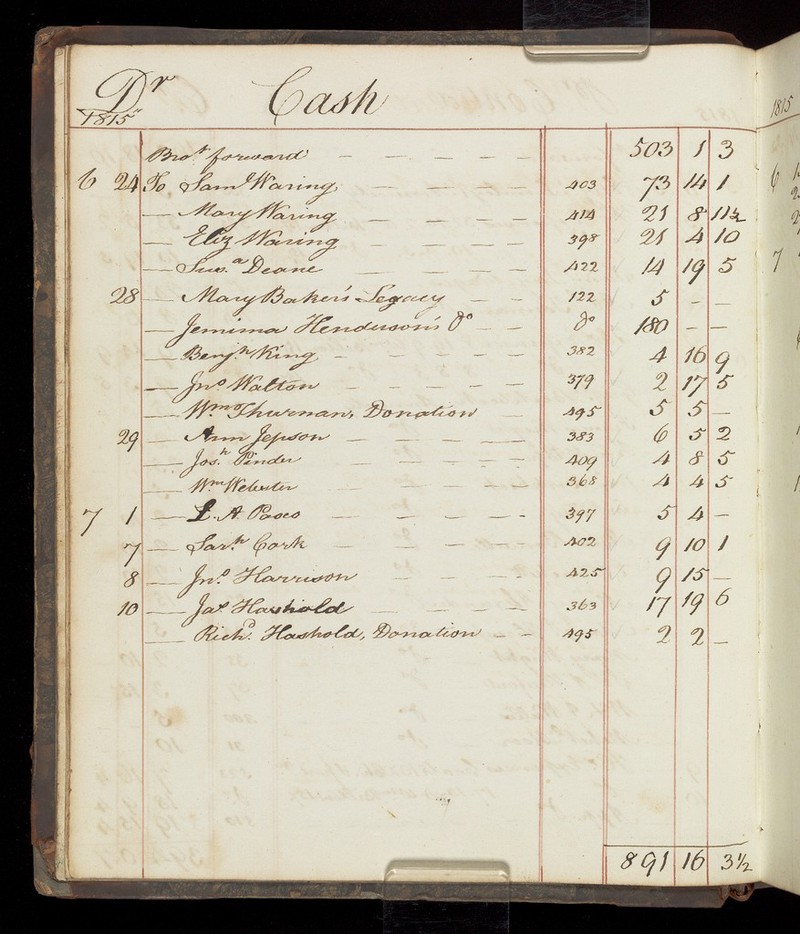 Dr Cash
1815
Brot. forward — — — — — — 503 1 3
6 24 To Saml Waring — — — — 403 73 14 1
— Mary Waring — — — — 414 21 8 11½
— Eliz Waring — — — — 398 21 4 10
— Susa. Deane — — — — 422 14 19 5
28 — Mary Baker's Legacy — — 122 5 — —
— Jemima Henderson's Do — — Do 180 — —
— Benjn King — — — — — 382 4 16 9
— Jno Walton — — — — — 379 2 17 5
— Wm Thurnan, Donation — 495 5 5 —
29 — Ann Jepson — — — — 383 6 5 2
— Josh. Pinder — — — — 409 4 8 5
— Wm Webster — — — — 368 4 4 5
7 1 — L. A. Paseo — — — — 397 5 4 —
7 — Sarh. Cork — — — — 402 9 10 1
8 — Jno. Harrison — — — 425 9 15 —
10 — Jas Hashold — — — 363 17 19 6
— Richd. Hashold, Donation — — 495 2 2 —
891 16 3½
1815
6
7